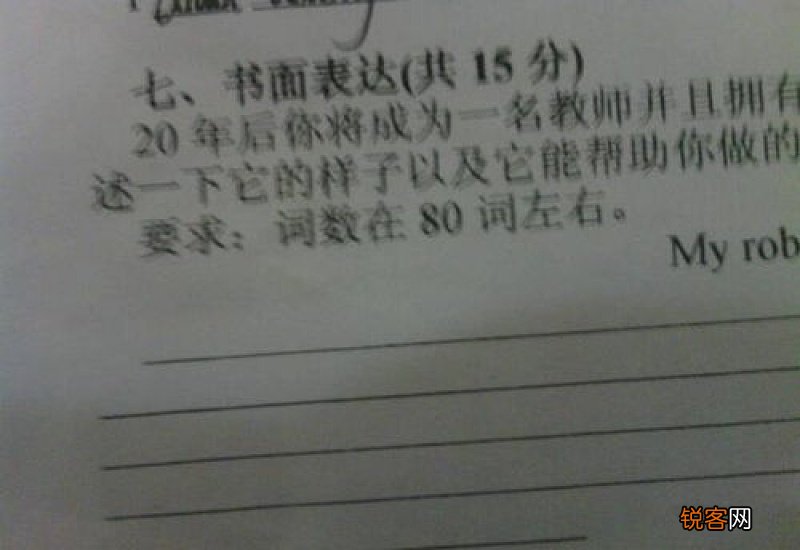 七、书面表达(共 15 分)
20 年后你将成为一名教师并且拥有
述一下它的样子以及它能帮助你做的
要求：词数在 80 词左右。
My rob
锐客网